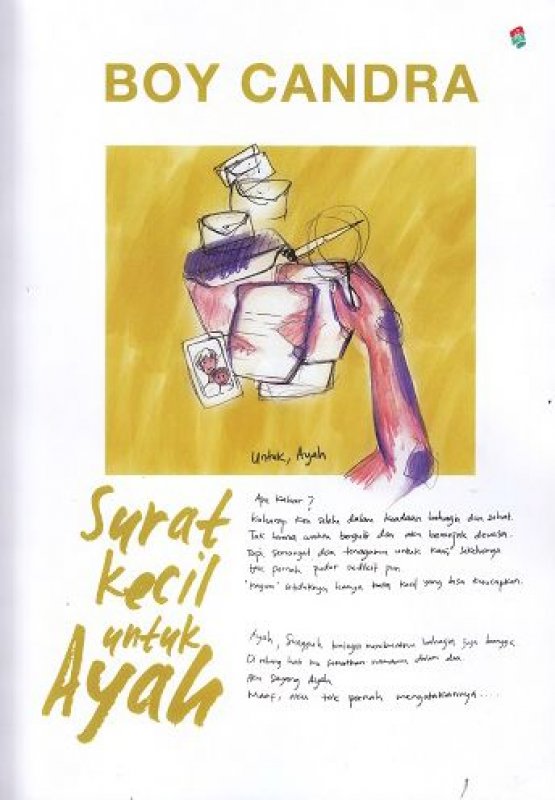 BOY CANDRA
Untuk, Ayah
Surat
kecil
untuk
Ayah
Apa kabar?
Kuharap kau selalu dalam keadaan bahagia dan sehat.
Tak terasa waktu bergulir dan aku beranjak dewasa.
Tapi, semangat dan tenagamu untuk kami sekeluarga
tak pernah pudar sedikit pun
"kagum" setidaknya hanya kata kecil yang bisa kuucapkan.
Ayah, sungguh bahagia membuatmu bahagia juga bangga,
Di relung hati ku namamu dalam doa
Aku sayang Ayah
Maaf, aku tak pernah mengatakannya....